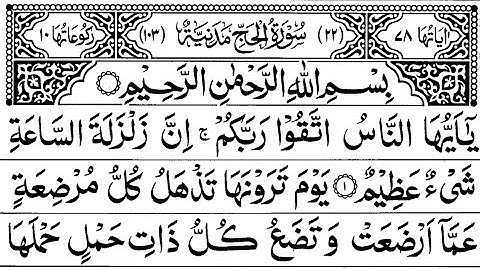 اٰيَاتُهَا ٧٨ (٢٢) سُوْرَةُ الْحَجِّ مَدَنِيَّةٌ (١٠٣) رُكُوْعَاتُهَا ١٠
بِسْمِ اللّٰهِ الرَّحْمٰنِ الرَّحِيْمِ
يٰۤاَيُّهَا النَّاسُ اتَّقُوْا رَبَّكُمْ ۚ اِنَّ زَلْزَلَةَ السَّاعَةِ
شَىْءٌ عَظِيْمٌ ١ يَوْمَ تَرَوْنَهَا تَذْهَلُ كُلُّ مُرْضِعَةٍ
عَمَّاۤ اَرْضَعَتْ وَتَضَعُ كُلُّ ذَاتِ حَمْلٍ حَمْلَهَا